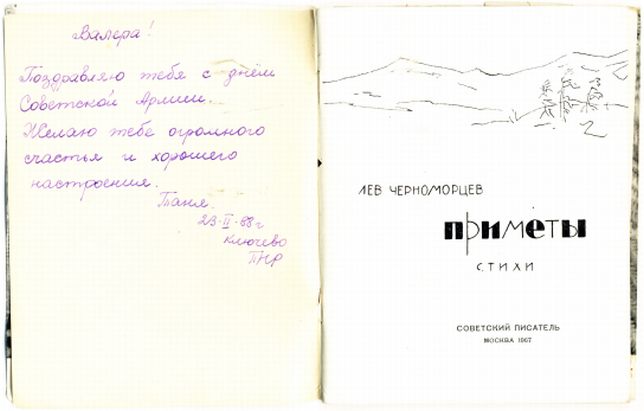 Валера!
Поздравляю тебя с днём
Советской Армии.
Желаю тебе огромного
счастья и хорошего
настроения.
Таня.
23·II·88г
Ключево
ПНР
ЛЕВ ЧЕРНОМОРЦЕВ
ПРИМЕТЫ
СТИХИ
СОВЕТСКИЙ ПИСАТЕЛЬ
МОСКВА 1967